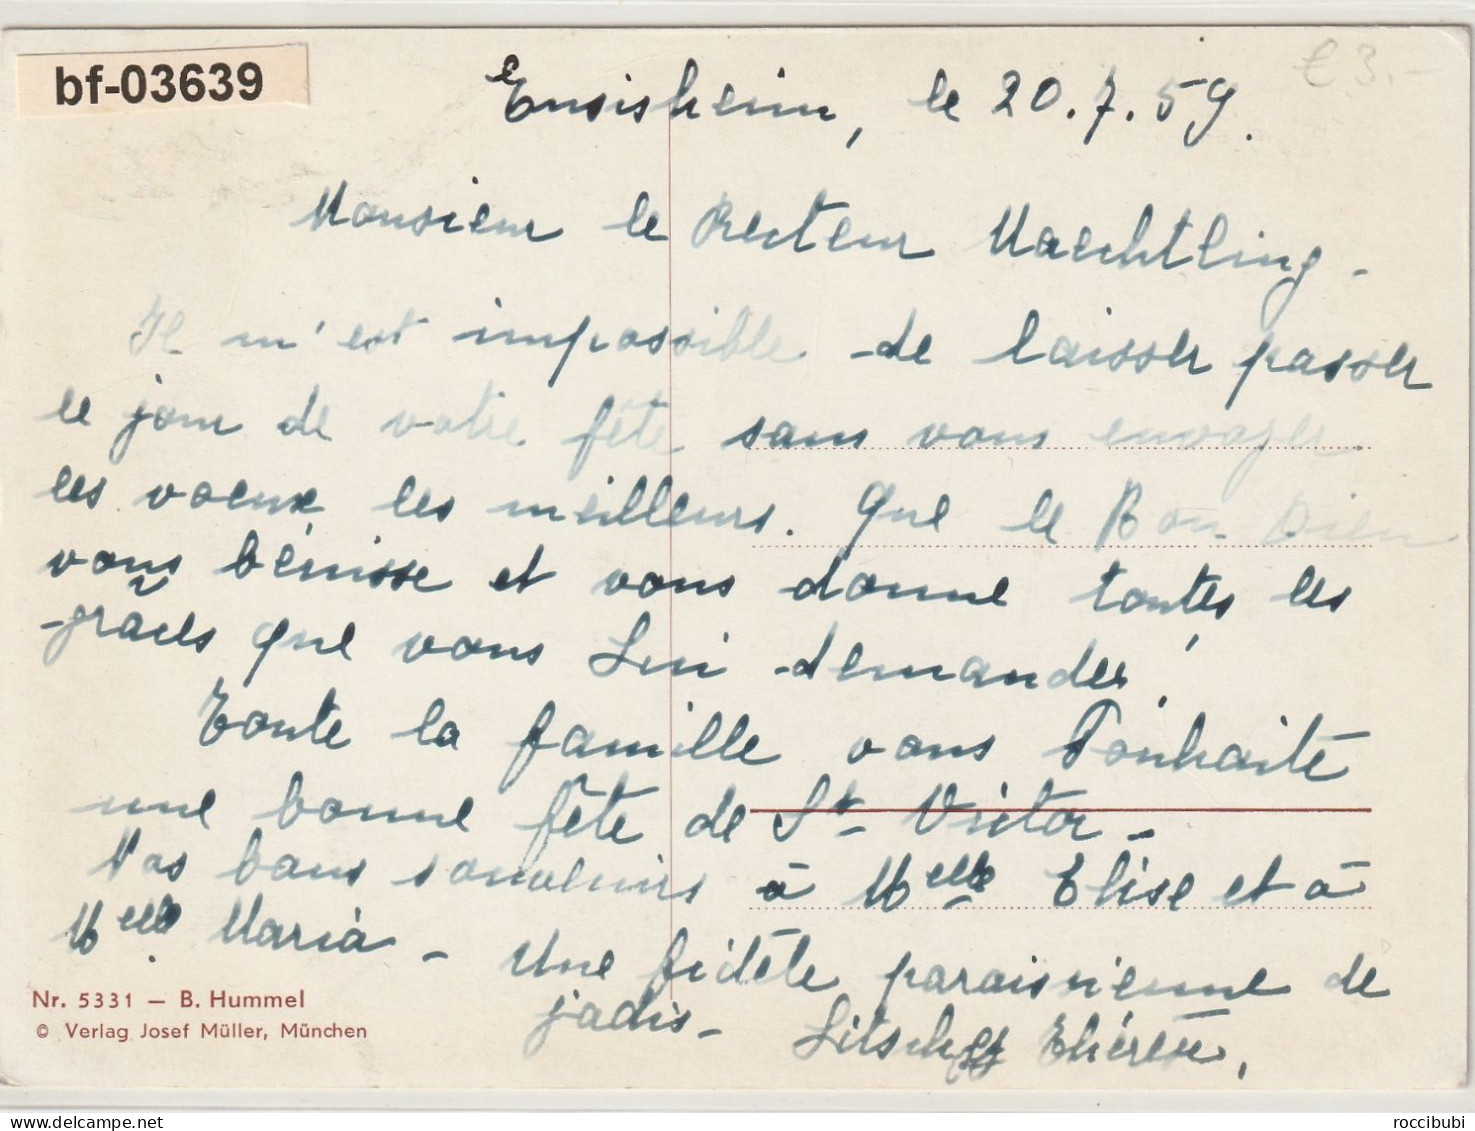 bf-03639
€ 3.-
Ensisheim, le 20.7.59.
Monsieur le Recteur Maechtling -
Il m'est impossible de laisser passer
le jour de votre fête sans vous envoyer
les voeux les meilleurs. Que le Bon Dieu
vous bénisse et vous donne toutes les
grâces que vous Lui demandez.
Toute la famille vous souhaite
une bonne fête de St Victor -
Nos bons souvenirs à Melle Elise et à
Melle Maria - Une fidèle paroissienne de
jadis - Thérèse,
Nr. 5331 – B. Hummel
© Verlag Josef Müller, München
roccibubi